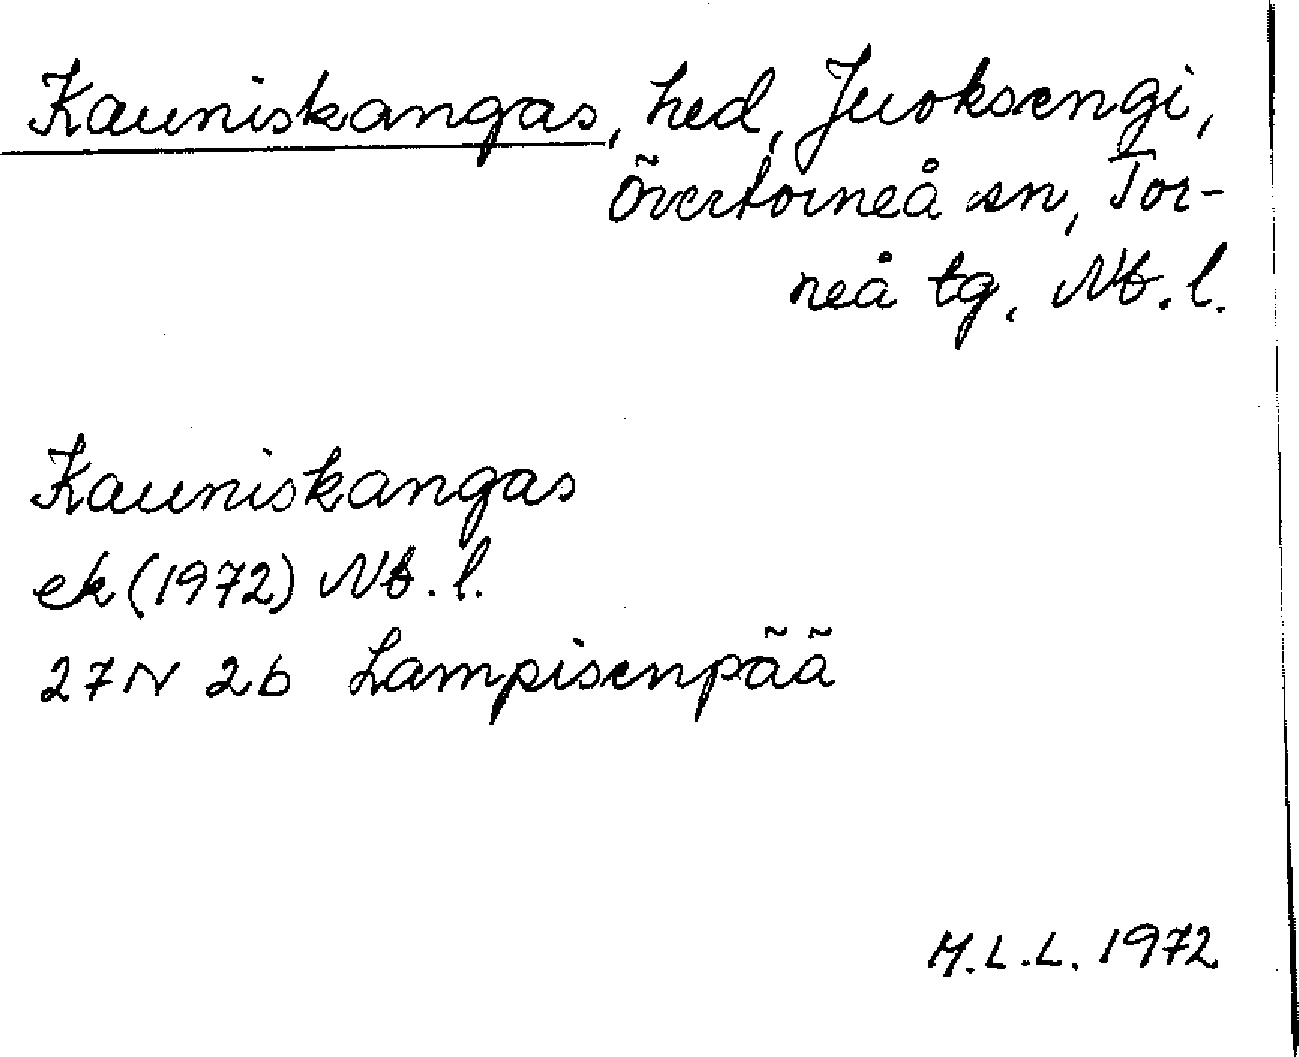 Kauniskangas, hed, Juoksengi,
Övertorneå sn, Tor-
neå tg, Nb. l.
Kauniskangas
ek (1972) Nb. l.
27N 2b Lampisenpää
M.L.L. 1972